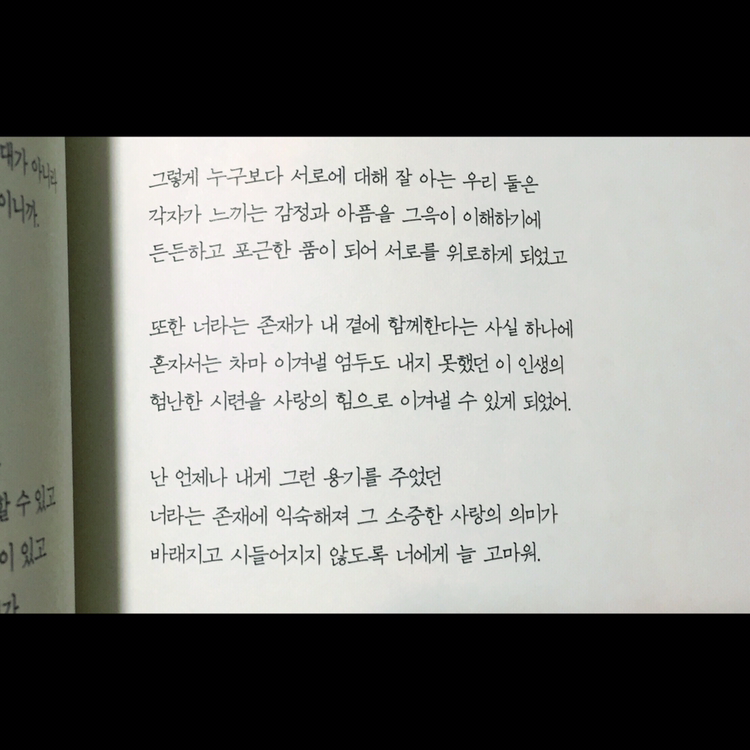 대가 아니라
이니까.
그렇게 누구보다 서로에 대해 잘 아는 우리 둘은
각자가 느끼는 감정과 아픔을 그윽이 이해하기에
든든하고 포근한 품이 되어 서로를 위로하게 되었고
또한 너라는 존재가 내 곁에 함께한다는 사실 하나에
혼자서는 차마 이겨낼 엄두도 내지 못했던 이 인생의
험난한 시련을 사랑의 힘으로 이겨낼 수 있게 되었어.
난 언제나 내게 그런 용기를 주었던
너라는 존재에 익숙해져 그 소중한 사랑의 의미가
바래지고 시들어지지 않도록 너에게 늘 고마워.
할 수 있고
이 있고